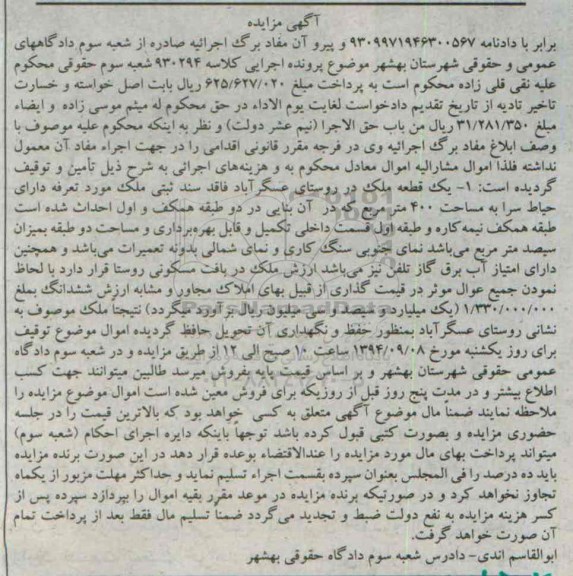 آگهی مزایده
برابر با دادنامه ۹۳۰۹۹۷۱۹۴۶۳۰۰۵۶۷ و پیرو آن مفاد برگ اجرائیه صادره از شعبه سوم دادگاههای
عمومی و حقوقی شهرستان بهشهر موضوع پرونده اجرایی کلاسه ۹۳۰۲۹۴ شعبه سوم حقوقی محکوم
علیه نقی قلی زاده محکوم است به پرداخت مبلغ ۶۲۵/۶۲۷/۰۲۰ ریال بابت اصل خواسته و خسارت
تاخیر تادیه از تاریخ تقدیم دادخواست لغایت یوم الاداء در حق محکوم له میثم موسی زاده و ایضاء
مبلغ ۳۱/۲۸۱/۳۵۰ ریال من باب حق الاجرا (نیم عشر دولت) و نظر به اینکه محکوم علیه موصوف با
وصف ابلاغ مفاد برگ اجرائیه وی در فرجه مقرر قانونی اقدامی را در جهت اجراء مفاد آن معمول
نداشته فلذا اموال مشارالیه اموال معادل محکوم به و هزینه‌های اجرائی به شرح ذیل تأمین و توقیف
گردیده است: ۱- یک قطعه ملک در روستای عسگرآباد فاقد سند ثبتی ملک مورد تعرفه دارای
حیاط سرا به مساحت ۴۰۰ متر مربع که در آن بنایی در دو طبقه همکف و اول احداث شده است
طبقه همکف نیمه کاره و طبقه اول قسمت داخلی تکمیل و قابل بهره‌برداری و مساحت دو طبقه بمیزان
سیصد متر مربع می‌باشد نمای جنوبی سنگ کاری و نمای شمالی بدونه تعمیرات می‌باشد و همچنین
دارای امتیاز آب برق گاز تلفن نیز می‌باشد ارزش ملک در بافت مسکونی روستا قرار دارد با لحاظ
نمودن جمیع عوال موثر در قیمت گذاری از قبیل بهای املاک مجاور و مشابه ارزش ششدانگ بمبلغ
۱/۳۳۰/۰۰۰/۰۰۰ (یک میلیارد و سیصد و سی میلیون ریال برآورد میگردد) نتیجتاً ملک موصوف به
نشانی روستای عسگرآباد بمنظور حفظ و نگهداری آن تحویل حافظ گردیده اموال موضوع توقیف
برای روز یکشنبه مورخ ۱۳۹۴/۰۹/۰۸ ساعت ۱۰ صبح الی ۱۲ از طریق مزایده و در شعبه سوم دادگاه
عمومی حقوقی شهرستان بهشهر و بر اساس قیمت پایه بفروش میرسد طالبین میتوانند جهت کسب
اطلاع بیشتر و در مدت پنج روز قبل از روزیکه برای فروش معین شده است اموال موضوع مزایده را
ملاحظه نمایند ضمناً مال موضوع آگهی متعلق به کسی خواهد بود که بالاترین قیمت را در جلسه
حضوری مزایده و بصورت کتبی قبول کرده باشد توجهاً باینکه دایره اجرای احکام (شعبه سوم)
میتواند پرداخت بهای مال مورد مزایده را عندالاقتضاء بوعده قرار دهد در این صورت برنده مزایده
باید ده درصد را فی المجلس بعنوان سپرده بقسمت اجراء تسلیم نماید و حداکثر مهلت مزبور از یکماه
تجاوز نخواهد کرد و در صورتیکه برنده مزایده در موعد مقرر بقیه اموال را بپردازد سپرده پس از
کسر هزینه مزایده به نفع دولت ضبط و تجدید می گردد ضمناً تسلیم مال فقط بعد از پرداخت تمام
آن صورت خواهد گرفت.
ابوالقاسم اندی- دادرس شعبه سوم دادگاه حقوقی بهشهر